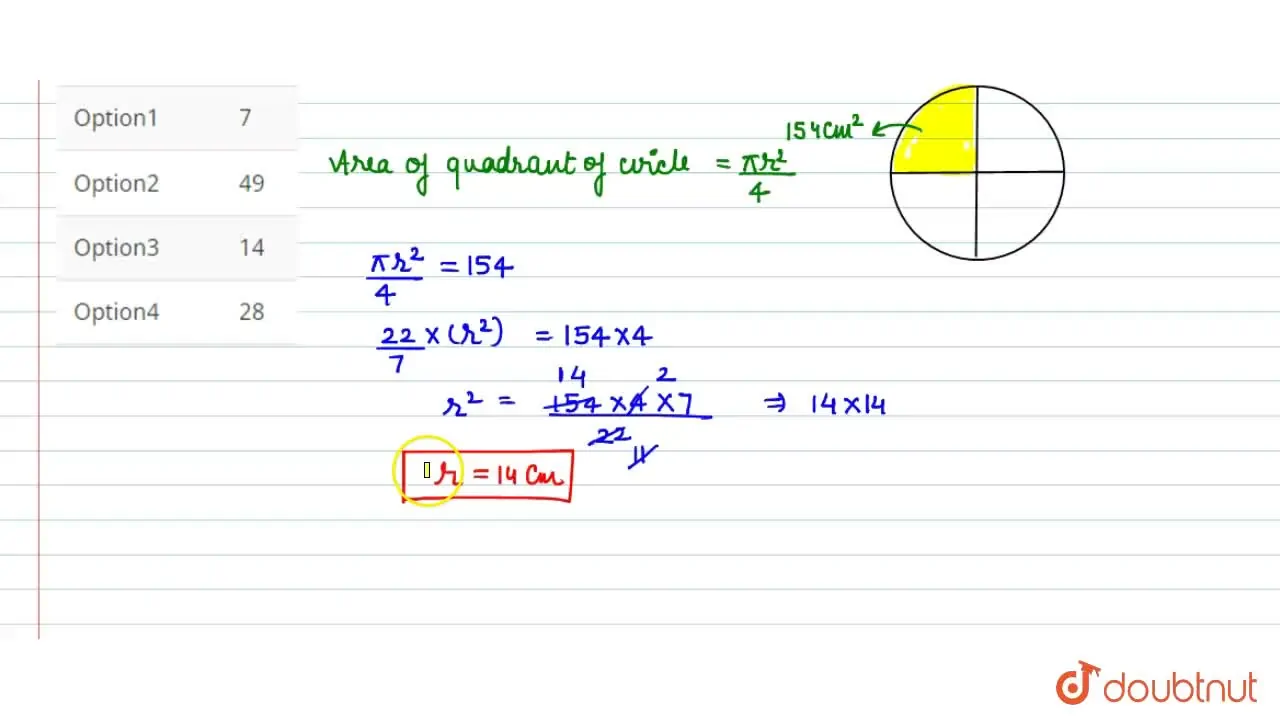 Option1 7
Option2 49
Option3 14
Option4 28
154cm²
Area of quadrant of circle = πr²/4
πr²/4 = 154
22/7 × (r²) = 154 × 4
14 2
r² = 154 × 4 × 7 / 22 ⇒ 14 × 14
11
r = 14 cm
doubtnut